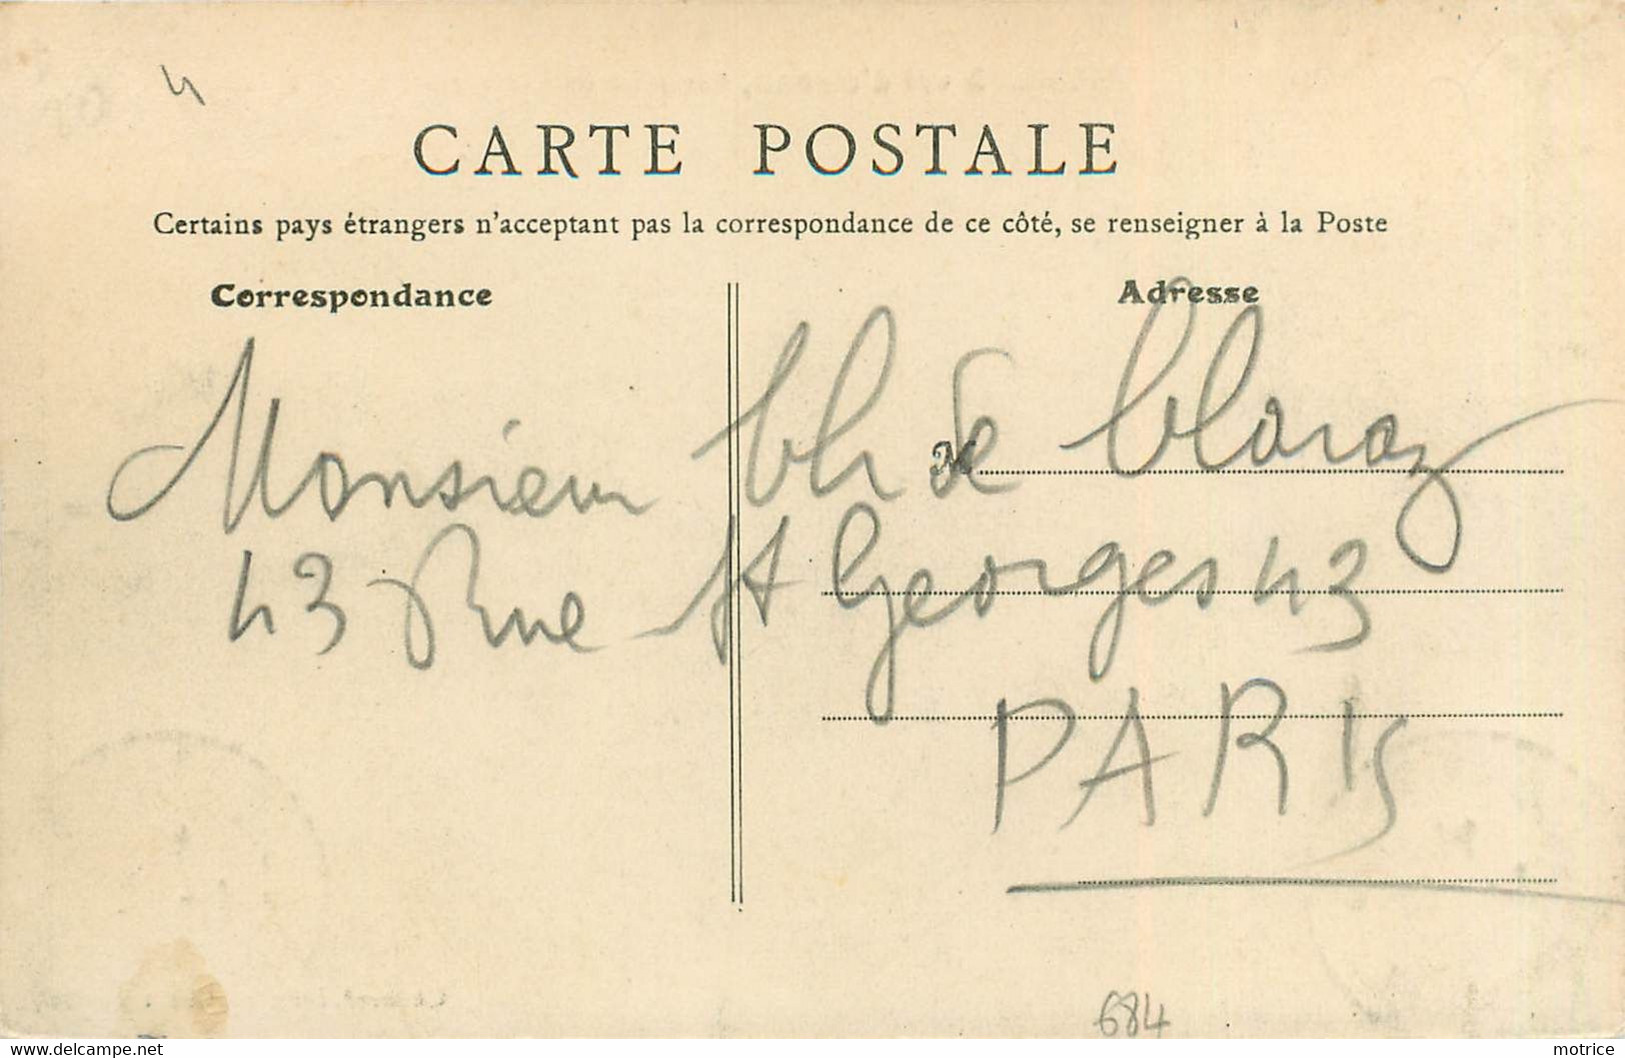 4
CARTE POSTALE
Certains pays étrangers n'acceptant pas la correspondance de ce côté, se renseigner à la Poste
Correspondance
Adresse
M
Monsieur Ch de Claraz
43 Rue St Georges 43
PARIS
684
delcampe.net
motrice